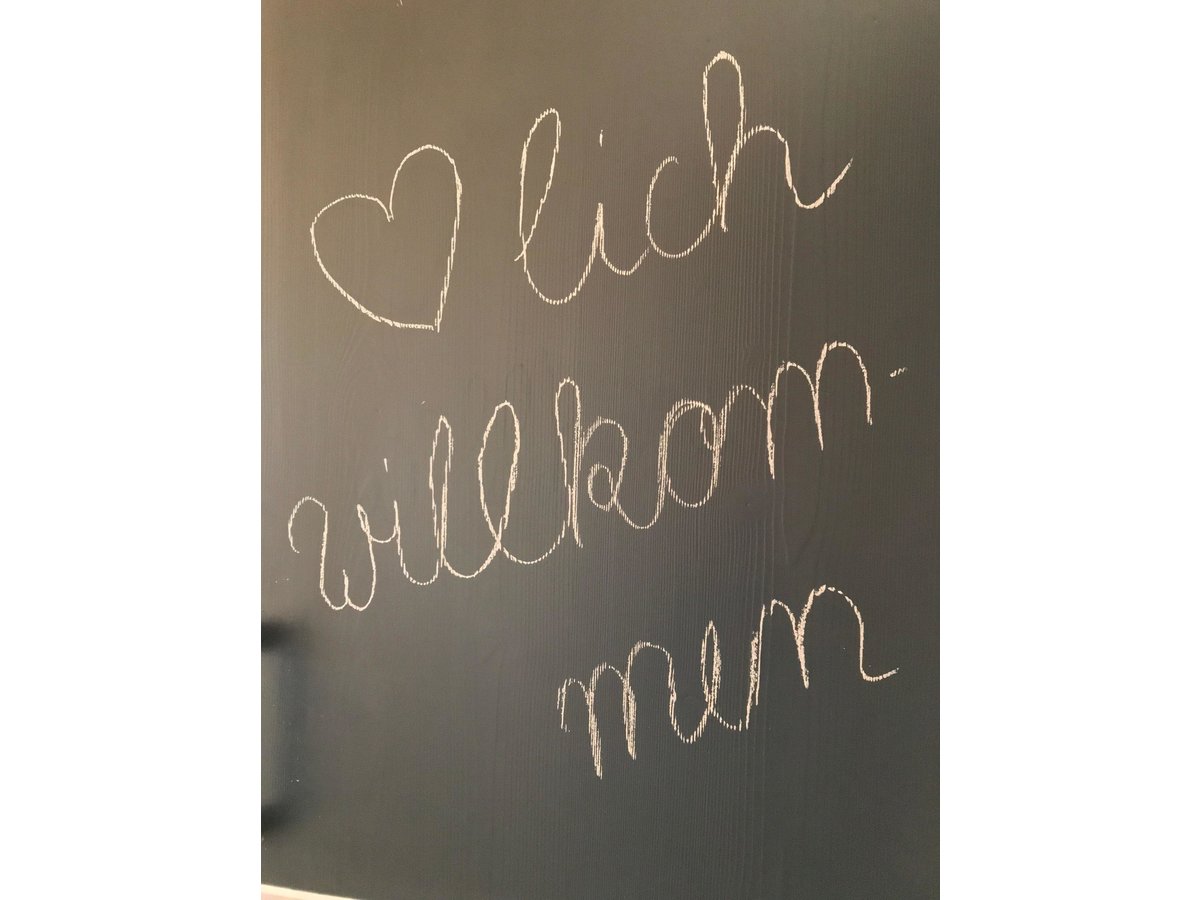 ♡lich
willkom-
men